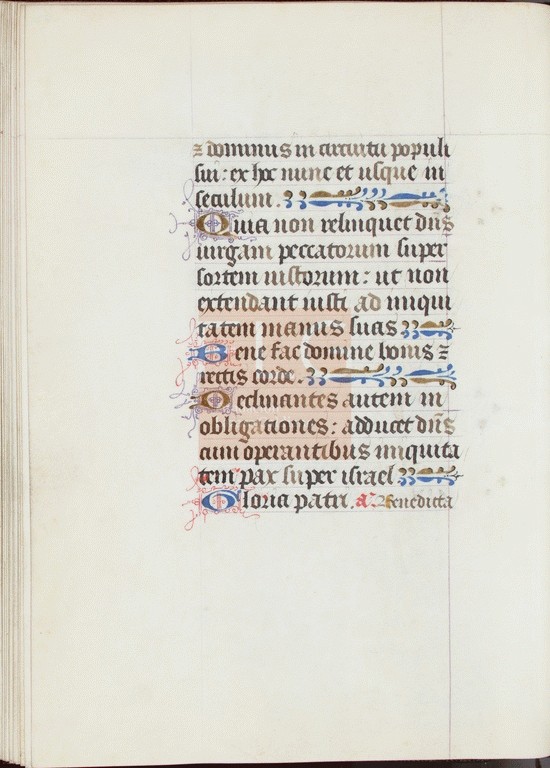 ⁊ dominus in circuitu populi
sui : ex hoc nunc et usque in
seculum .
Quia non relinquet dn̄s
uirgam peccatorum super
sortem iustorum : ut non
extendant iusti ad iniqui
tatem manus suas
Bene fac domine bonis ⁊
rectis corde .
Declinantes autem in
obligationes : adducet dn̄s
cum operantibus iniquita
tem pax super israel
Gloria patri . a᷒. Benedicta